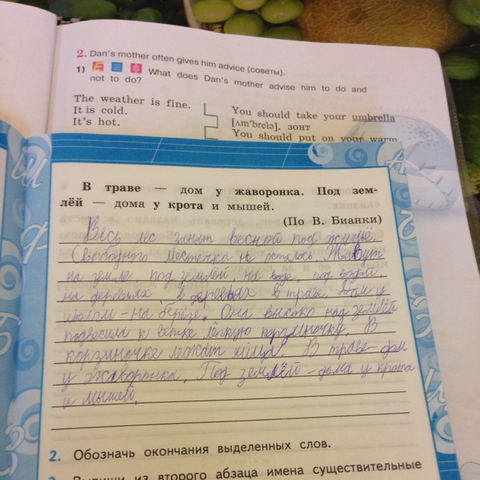 2. Dan's mother often gives him advice (советы).
1) What does Dan's mother advise him to do and
not to do?
The weather is fine.
It is cold.
It's hot.
You should take your umbrella
[ʌm'brelə]. зонт
You should put on your warm
В траве — дом у жаворонка. Под зем-
лёй — дома у крота и мышей.
(По В. Бианки)
Весь лес занят весной под жильё.
Свободного местечка не осталось. Живут
на земле под землёй на воде, под водой,
на деревьях, в деревьях в траве. Дом у
иволги - на берёзе. Она высоко над землёй
подвесила к ветке лёгкую корзиночку. В
корзиночке лежат яйца. В траве - дом
у жаворонка. Под землёй - дома у крота
и мышей.
2. Обозначь окончания выделенных слов.
3. Выпиши из второго абзаца имена существительные